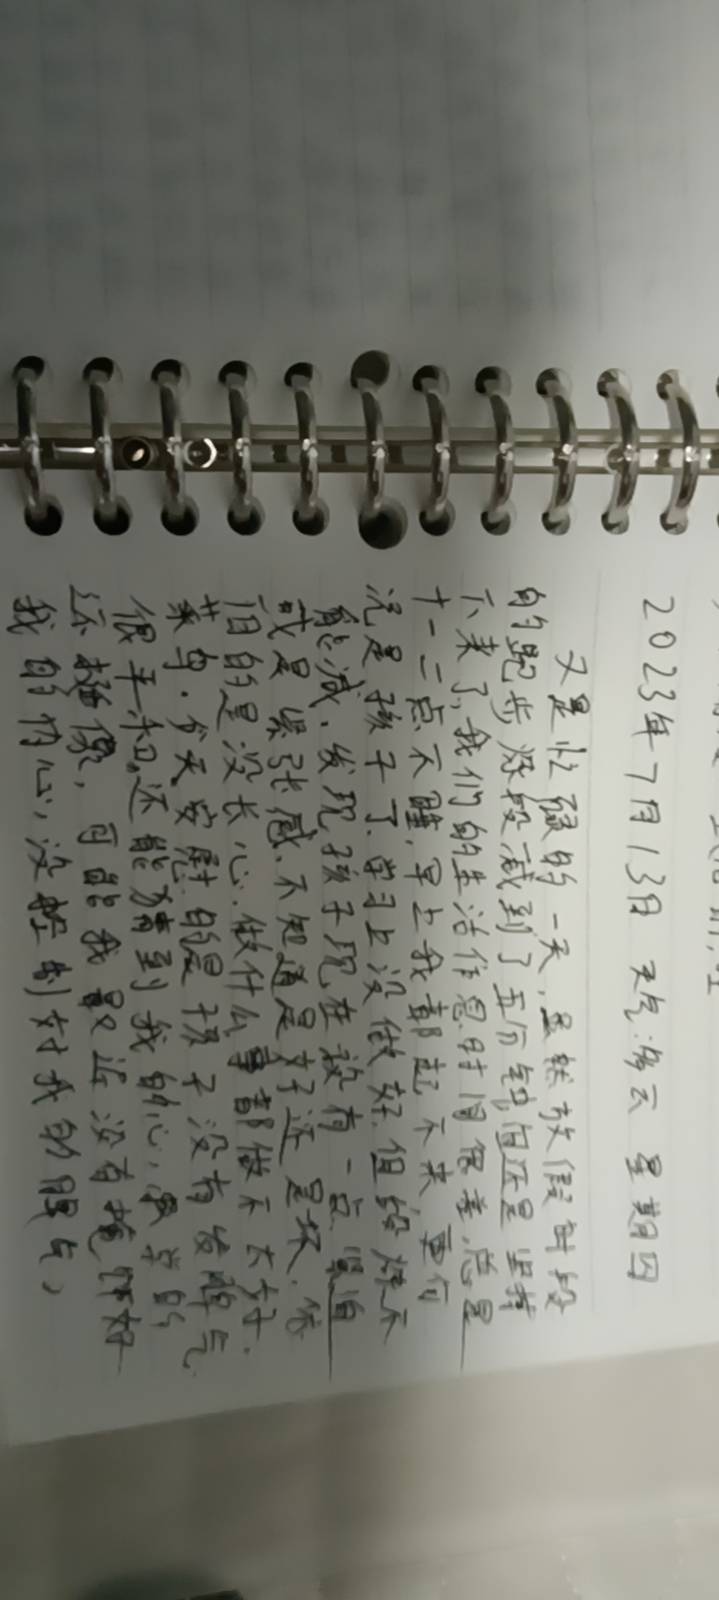 2023年7月13日 天气:多云 星期四
又是忙碌的一天,虽然放假时段
的跑步炼段减到了五分钟,但还是坚持
下来了,我们的生活作息时间很差,总是
十一二点不睡,早上我都起不来,更何
况是孩子了.学习上没做好.但锻炼不
能减.发现孩子现在没有一点紧迫
或是紧张感.不知道是好还是坏.依
旧的是没长心.做什么事都做不太好.
菜鸟.今天安慰的是孩子没有发脾气
很平和.还能猜到我的心,学的
还挺像,可能我最近没有掩饰好
我的内心,没控制好我的脾气,